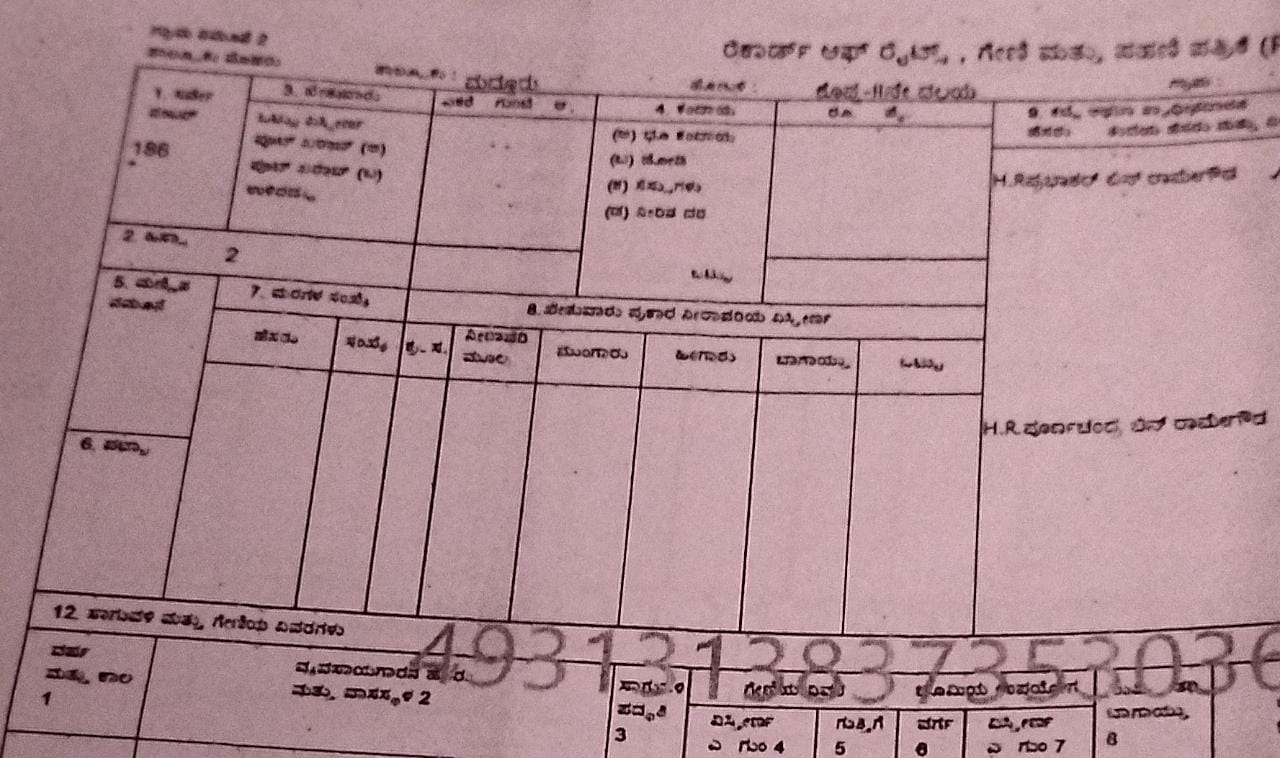 ಗ್ರಾಮ ನಮೂನೆ 2
ರೆಕಾರ್ಡ್ ಆಫ್ ರೈಟ್ಸ್ , ಗೇಣಿ ಮತ್ತು ಪಹಣಿ ಪತ್ರಿಕೆ
ತಾಲ್ಲೂಕು : ಮದ್ದೂರು ಹೋಬಳಿ : ಕೊಪ್ಪ-IIನೇ ವಲಯ ಗ್ರಾಮ :
1. ಸರ್ವೆ
ನಂಬರ್
186
3. ವಿಸ್ತೀರ್ಣ
ಎಕರೆ ಗುಂಟೆ ಆ.
ಒಟ್ಟು ವಿಸ್ತೀರ್ಣ
ಪೂಟ್ ಖರಾಬ್ (ಅ)
ಪೂಟ್ ಖರಾಬ್ (ಬ)
ಉಳಿದದ್ದು
4. ಕಂದಾಯ
ರೂ. ಪೈ.
(ಅ) ಭೂ ಕಂದಾಯ
(ಬ) ಜೋಡಿ
(ಕ) ಸೆಸ್ಸುಗಳು
(ಡ) ನೀರಿನ ದರ
ಒಟ್ಟು
H.R.ಪ್ರಭಾಕರ್ ಬಿನ್ ರಾಮೇಗೌಡ
2. ಹಿಸ್ಸಾ 2
5. ಮಣ್ಣಿನ
ನಮೂನೆ
7. ಮರಗಳ ಸಂಖ್ಯೆ
ಹೆಸರು ಸಂಖ್ಯೆ
ಕ್ರ. ಸ. ನೀರಾವರಿ ಮೂಲ ಮುಂಗಾರು ಹಿಂಗಾರು ಬಾಗಾಯ್ತು ಒಟ್ಟು
H.R.ಪೂರ್ಣಚಂದ್ರ ಬಿನ್ ರಾಮೇಗೌಡ
6. ಪಟ್ಟಾ
12. ಸಾಗುವಳಿ ಮತ್ತು ಗೇಣಿಯ ವಿವರಗಳು
4931313837353036
ವರ್ಷ
ಮತ್ತು ಕಾಲ
1
ವ್ಯವಸಾಯಗಾರನ ಹೆಸರು
ಮತ್ತು ವಾಸಸ್ಥಳ 2
ಸಾಗುವಳಿ
ಪದ್ಧತಿ
3
ಗೇಣಿಯ ವಿವರ
ವಿಸ್ತೀರ್ಣ
ಎ ಗುಂ 4
ಗುತ್ತಿಗೆ
5
ಭೂಮಿಯ ಉಪಯೋಗ
ವರ್ಗ
6
ವಿಸ್ತೀರ್ಣ
ಎ ಗುಂ 7
ಬಾಗಾಯ್ತು
8